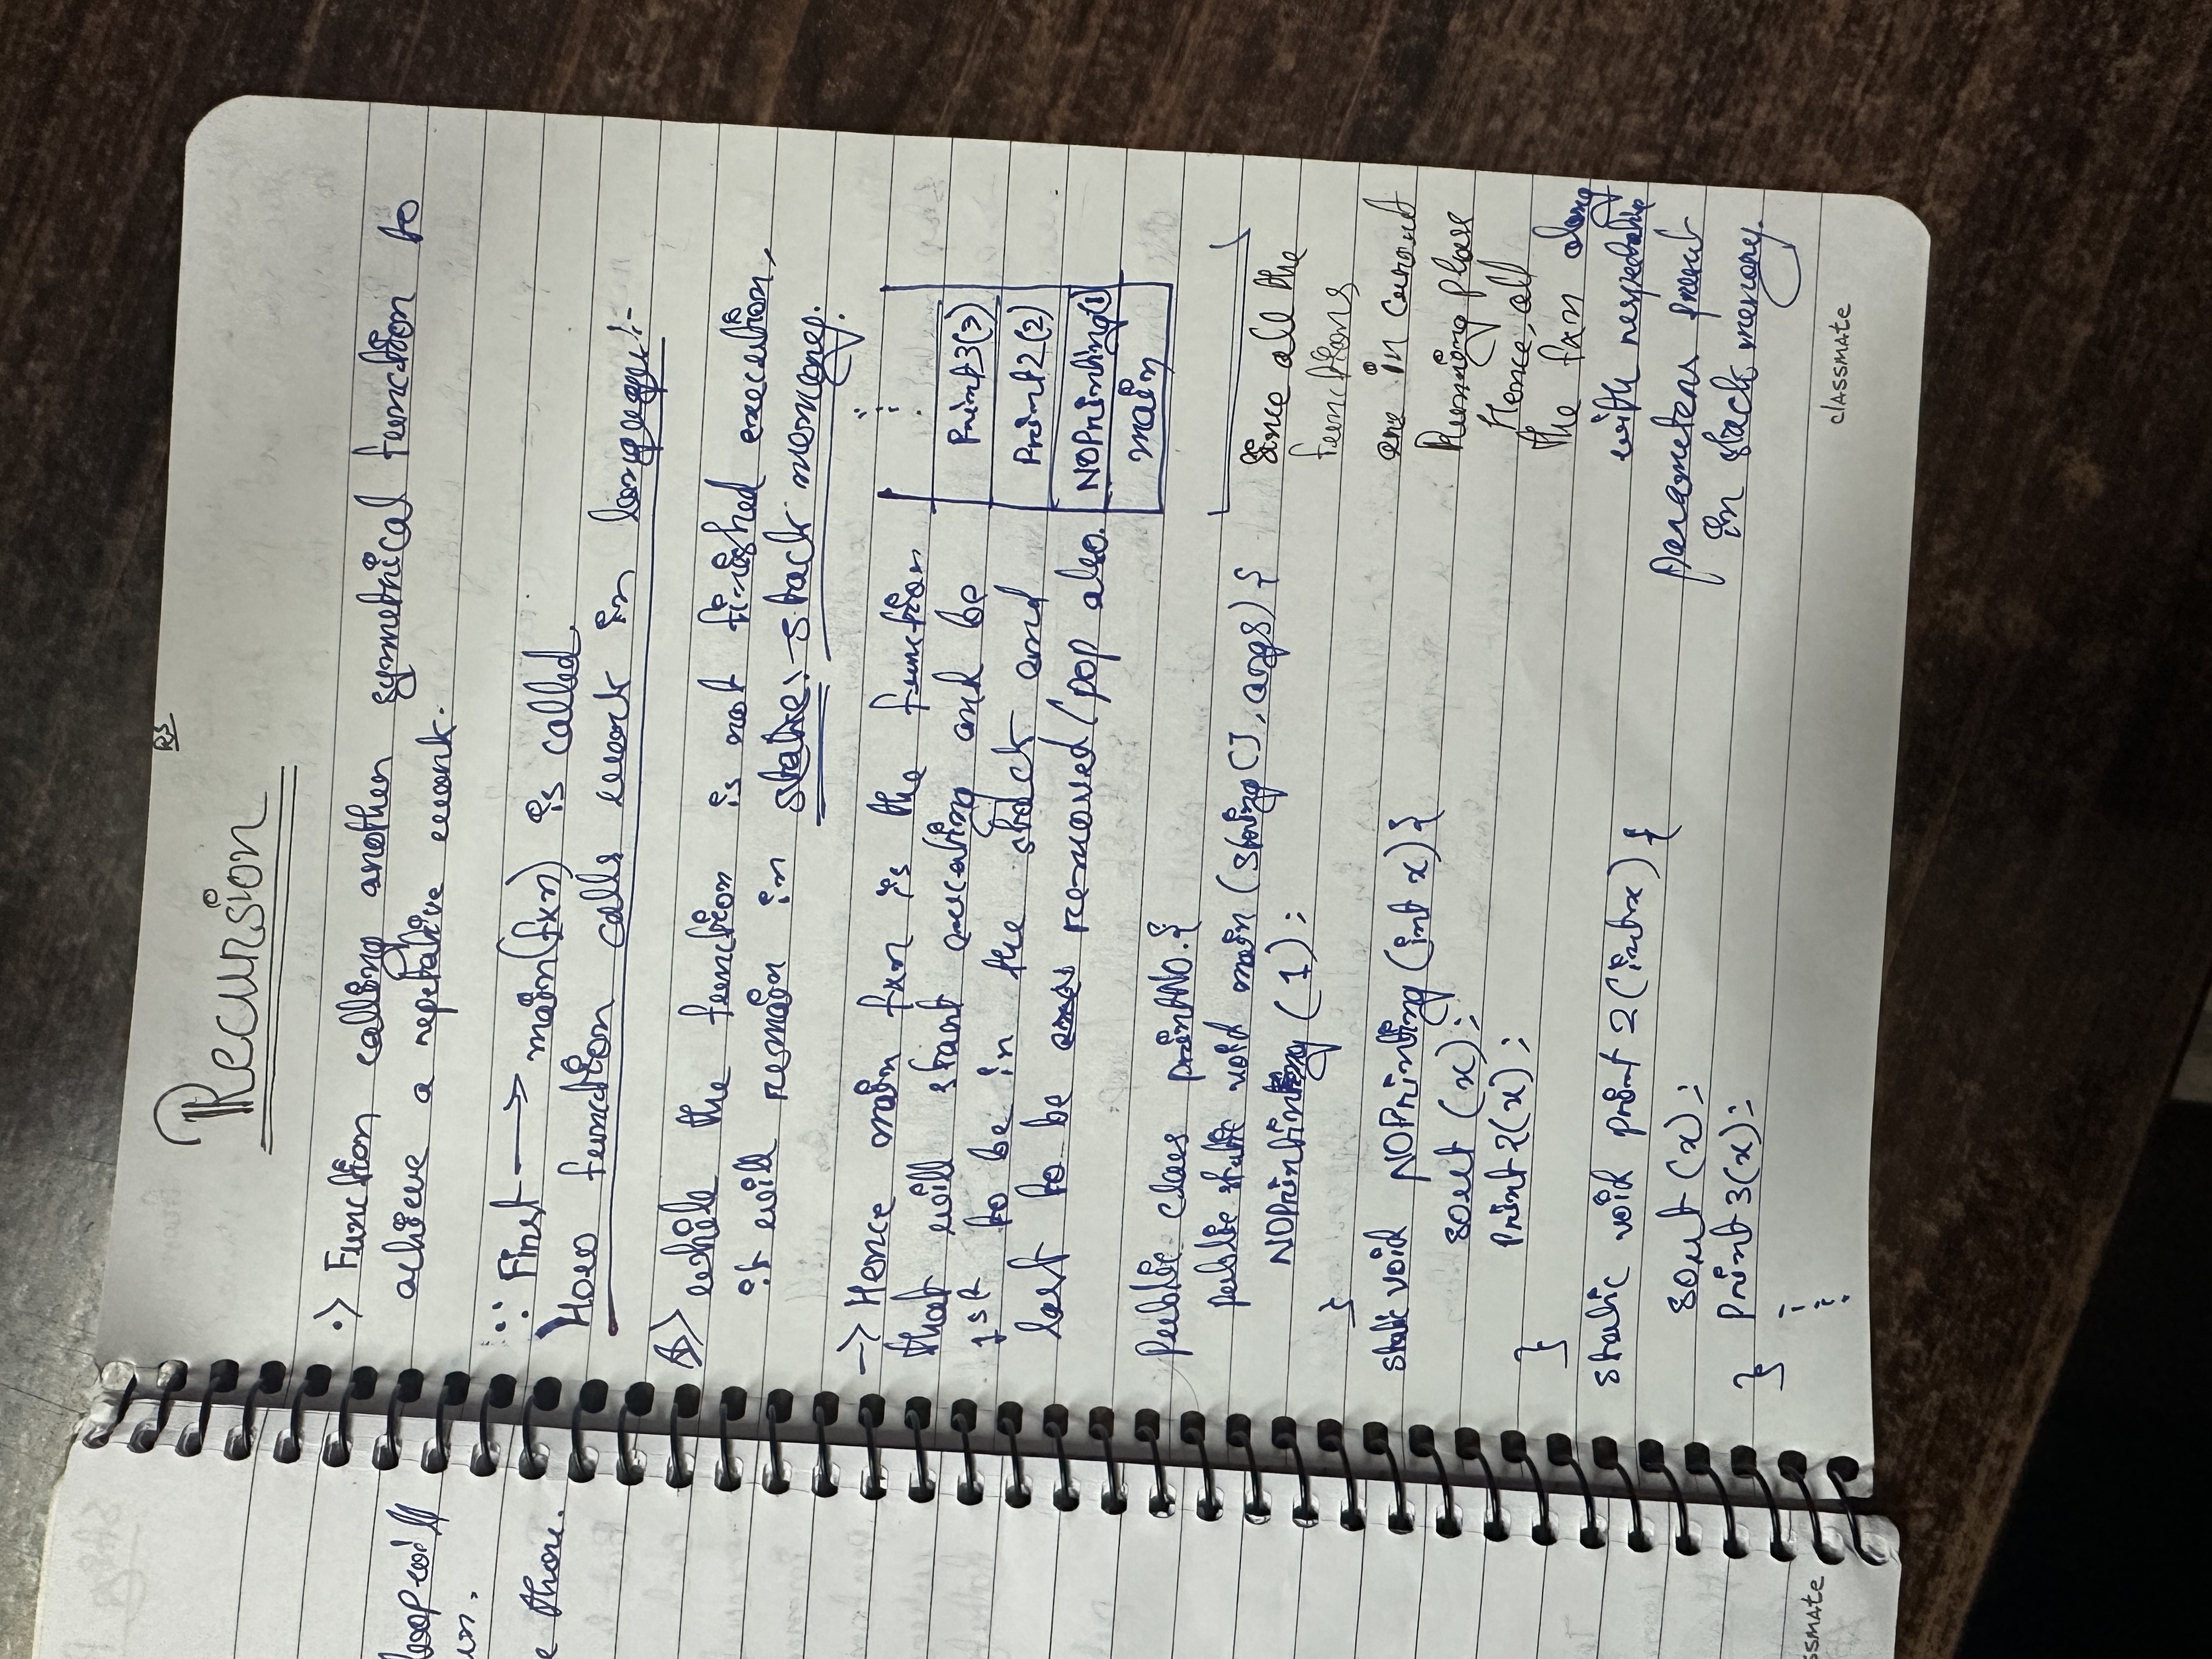 RS
Recursion
·> Function calling another symmetrical function to
achieve a repetative work.
∵ First → main(fxn) is called.
How function calls work in language:-
while the function is not finished execution,
it will remain in static:- stack memory.
-> Hence main fxn is the function
that will start executing and be
1st to be in the stack and
last to be removed/pop also.
⋮
Print3(3)
Print2(2)
NOPrinting(1)
main
Public class printNO.{
public static void main (string [], args) {
NOPrinting (1);
}
static void NOPrinting (int x) {
sout (x);
Print2(x);
}
static void print 2 (int x) {
sout (x);
Print 3(x);
}
⋮
Since all the
functions
are in current
Running phase
Hence, all
the fxn along
with respectative
parameters present
in stack memory.
classmate
loop will
e there.
ssmate